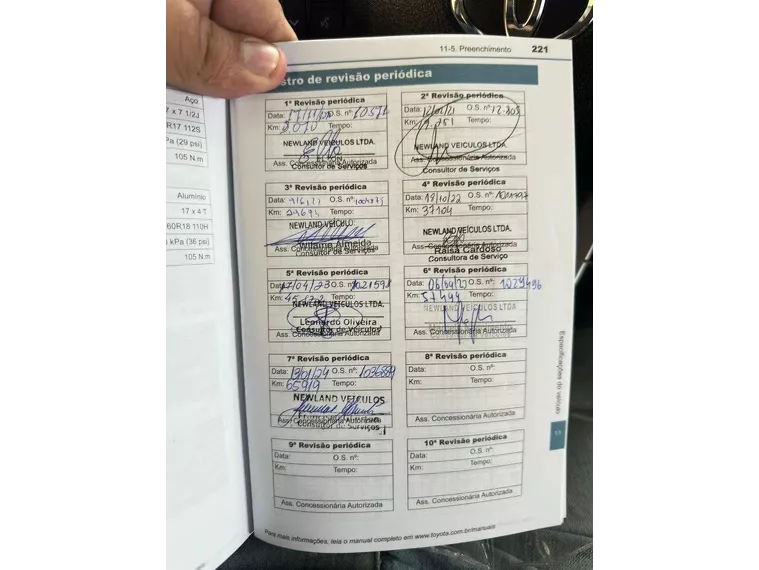 11-5. Preenchimento 221
stro de revisão periódica
Aço
7 x 7 1/2J
R17 112S
Pa (29 psi)
105 N.m
Alumínio
17 x 4 T
60R18 110H
kPa (36 psi)
105 N.m
1ª Revisão periódica
Data: O.S. nº:
Km: Tempo:
NEWLAND VEÍCULOS LTDA.
Ass. Concessionária Autorizada
Consultor de Serviços
2ª Revisão periódica
Data: O.S. nº:
Km: Tempo:
NEWLAND VEÍCULOS LTDA.
Ass. Concessionária Autorizada
Consultor de Serviços
3ª Revisão periódica
Data: O.S. nº:
Km: Tempo:
NEWLAND VEÍCULO
Almeida
Ass. Concessionária Autorizada
Consultor de Serviços
4ª Revisão periódica
Data: 18/10/22 O.S. nº:
Km: 37104 Tempo:
NEWLAND VEÍCULOS LTDA.
Ass. Concessionária Autorizada
Raisa Cardoso
Consultora de Serviço
5ª Revisão periódica
Data: 17/04/23 O.S. nº: 1021598
Km: Tempo:
NEWLAND VEÍCULOS LTDA.
Leonardo Oliveira
Ass. Concessionária Autorizada
Consultor de Veículos
6ª Revisão periódica
Data: O.S. nº: 1029496
Km: 57444 Tempo:
NEWLAND VEÍCULOS LTDA
Ass. Concessionária Autorizada
7ª Revisão periódica
Data: O.S. nº:
Km: 65919 Tempo:
NEWLAND VEÍCULOS
Ass. Concessionária Autorizada
Consultor de Serviços
8ª Revisão periódica
Data: O.S. nº:
Km: Tempo:
Ass. Concessionária Autorizada
9ª Revisão periódica
Data: O.S. nº:
Km: Tempo:
Ass. Concessionária Autorizada
10ª Revisão periódica
Data: O.S. nº:
Km: Tempo:
Ass. Concessionária Autorizada
Especificações do veículo
11
Para mais informações, leia o manual completo em www.toyota.com.br/manuais